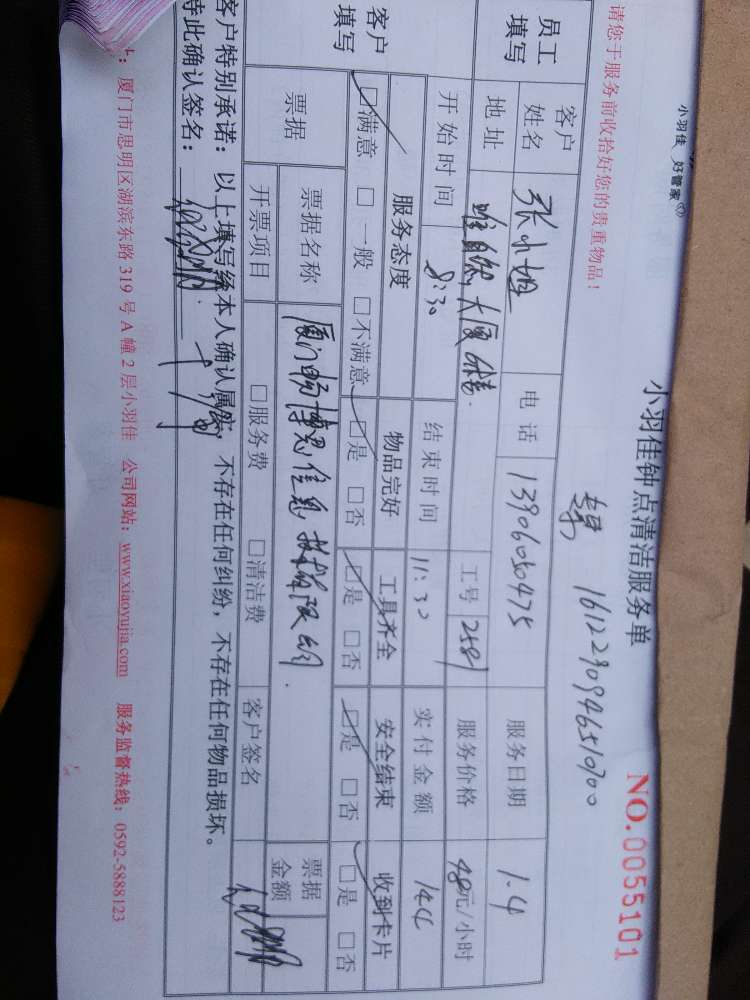 小羽佳 好管家
小羽佳钟点清洁服务单
NO.0055101
请您于服务前收拾好您的贵重物品！
1612290946510700
员工填写
客户姓名 张小姐 电话 13906050475 服务日期 1.4
地址 工号 2581 服务价格 48元/小时
开始时间 8:30 结束时间 11:30 实付金额 144
客户填写
服务态度 物品完好 工具齐全 安全结束 收到卡片
□满意 □一般 □不满意 □是 □否 □是 □否 □是 □否 □是 □否
票据 票据名称 厦门畅博思信息技术有限公司 票据金额
开票项目 □服务费 □清洁费 客户签名
客户特别承诺：以上填写经本人确认属实，不存在任何纠纷，不存在任何物品损坏。
特此确认签名：
：厦门市思明区湖滨东路 319 号 A 幢 2 层小羽佳 公司网站：www.xiaoyujia.com 服务监督热线：0592-5888123